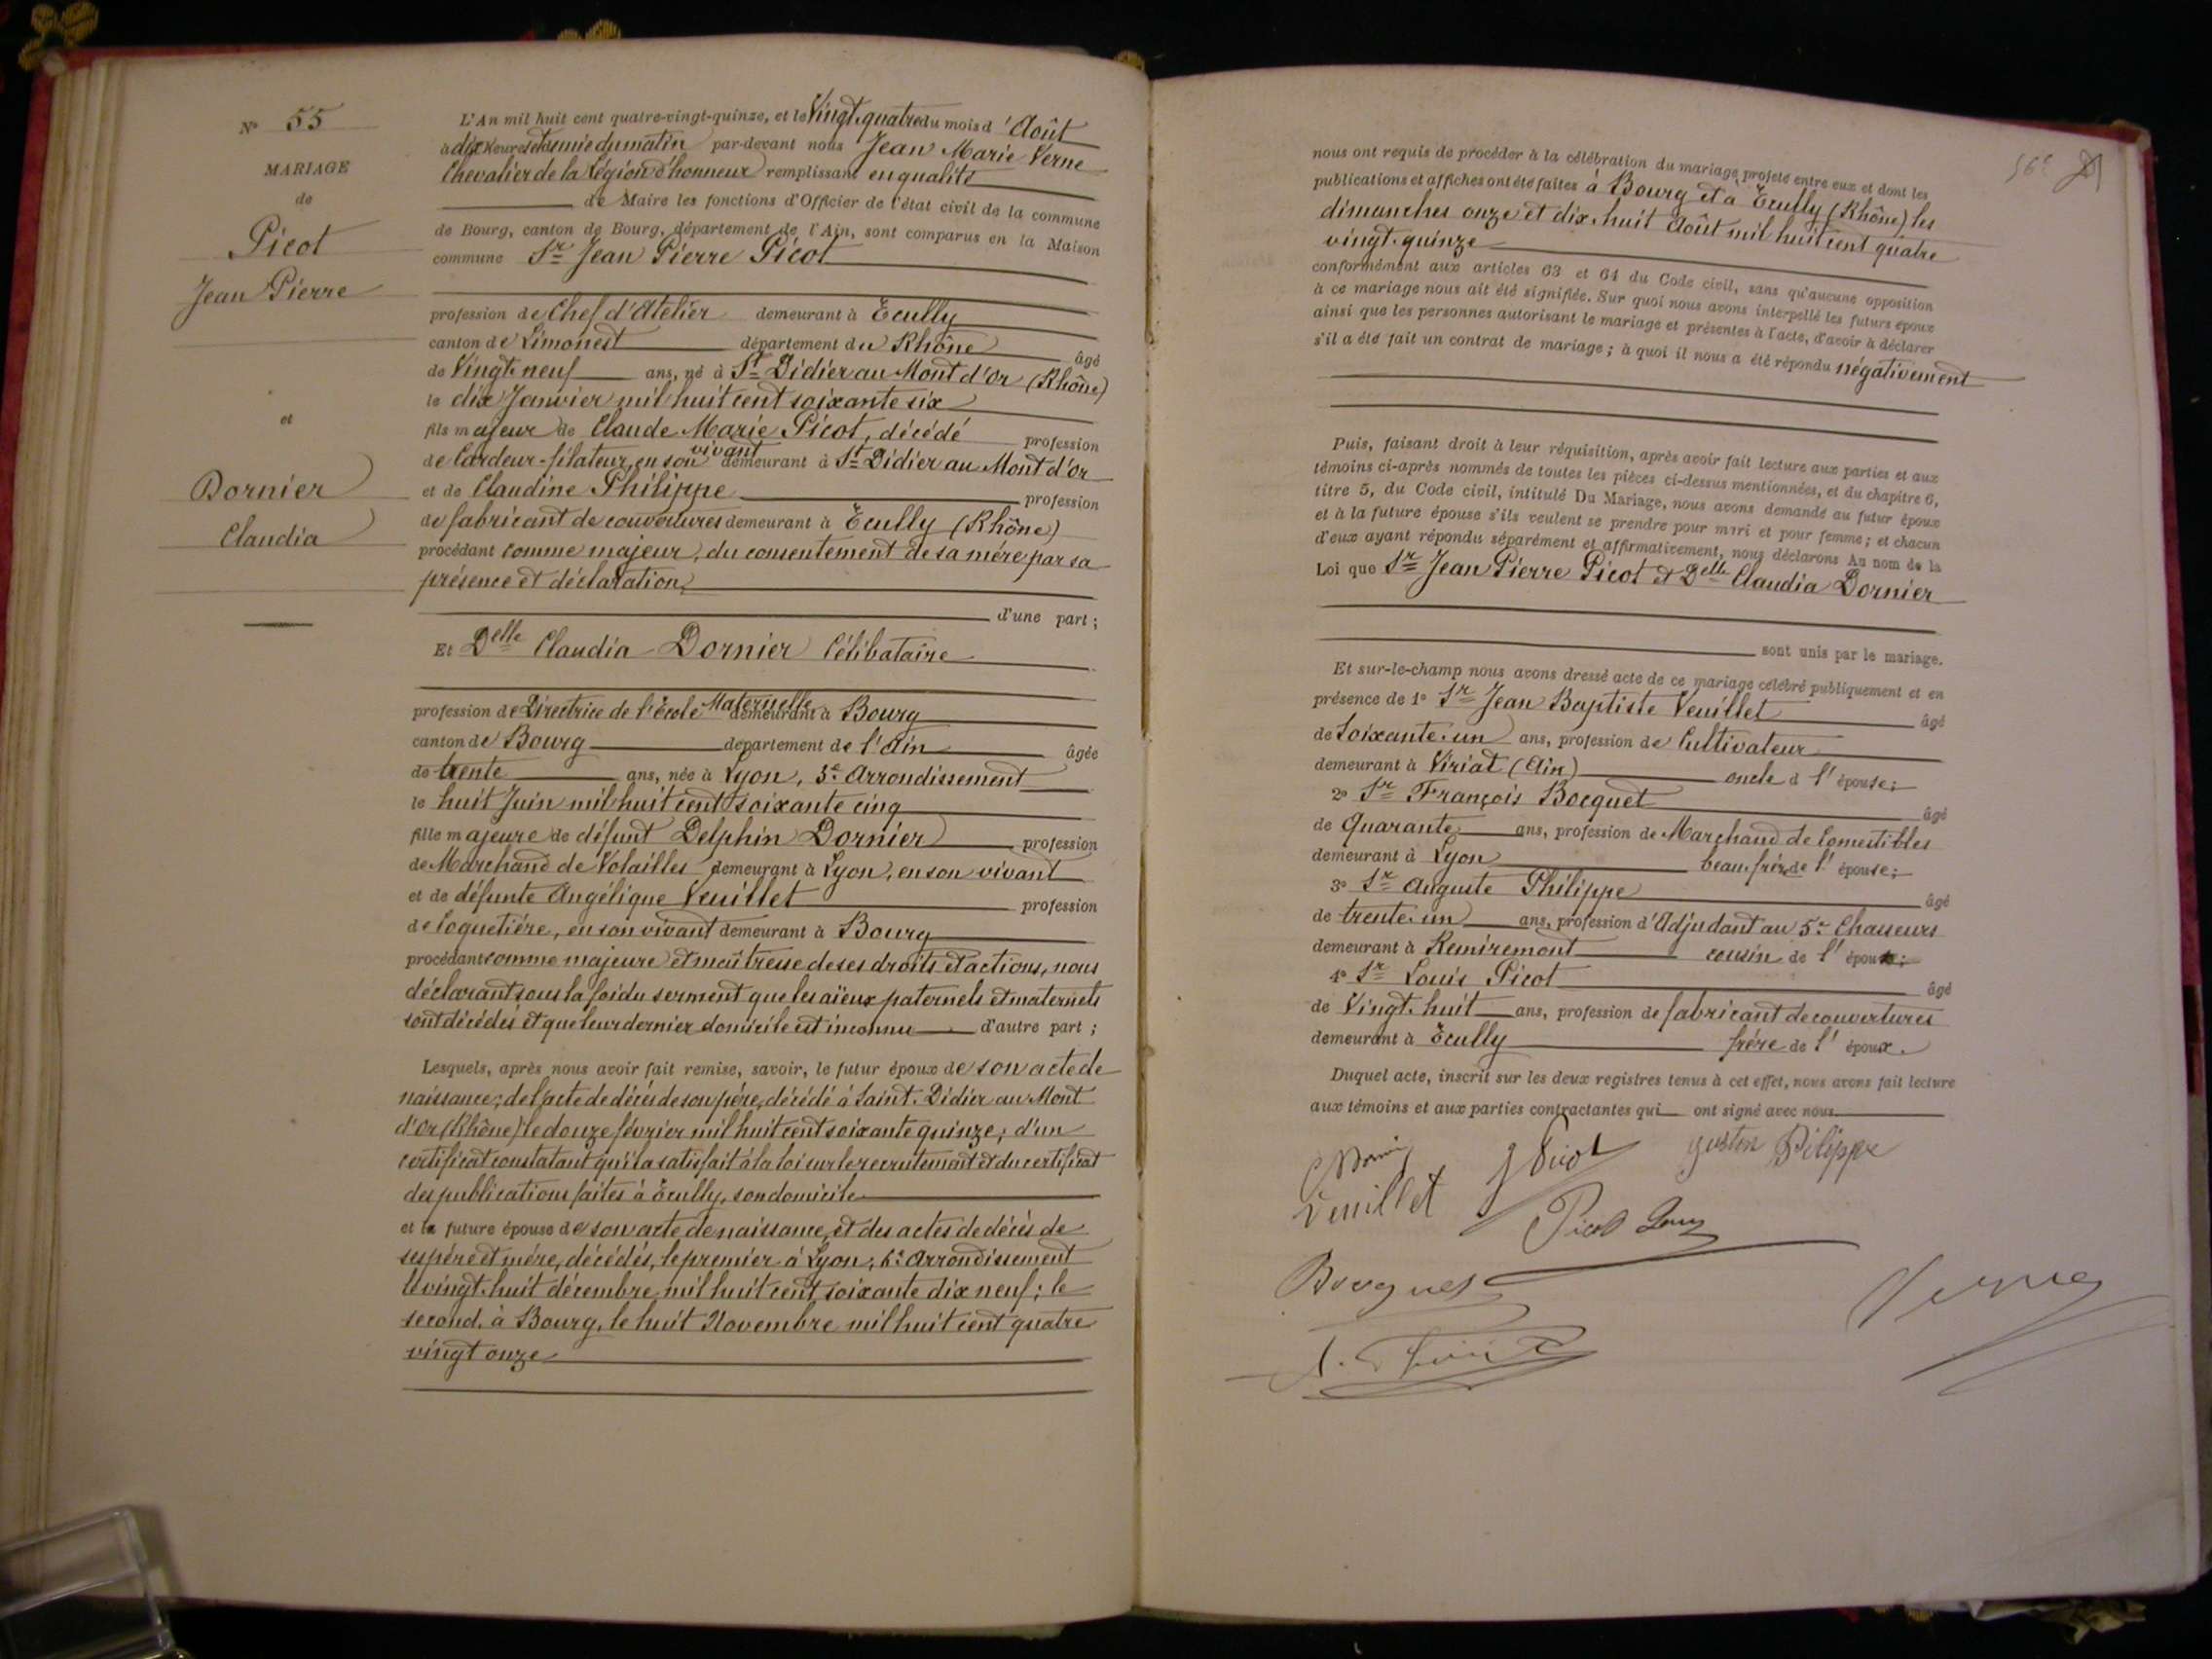 N° 55
MARIAGE
de
Picot
Jean Pierre
et
Dornier
Claudia
L'An mil huit cent quatre-vingt-quinze, et le Vingt-quatre du mois d'Août
à dix heures et demie du matin par-devant nous Jean Marie Verne
Chevalier de la Légion d'honneur remplissant en qualité
de Maire les fonctions d'Officier de l'état civil de la commune
de Bourg, canton de Bourg, département de l'Ain, sont comparus en la Maison
commune Sr Jean Pierre Picot
profession de Chef d'Atelier demeurant à Ecully
canton de Limonest département du Rhône âgé
de Vingt-neuf ans, né à St Didier au Mont d'Or (Rhône)
le dix Janvier mil huit cent soixante six
fils majeur de Claude Marie Picot, décédé profession
de Cardeur-filateur, en son vivant demeurant à St Didier au Mont d'Or
et de Claudine Philippe profession
de fabricant de couvertures demeurant à Ecully (Rhône)
procédant comme majeur, du consentement de sa mère par sa
présence et déclaration,
d'une part ;
Et Delle Claudia Dornier Célibataire
profession de Directrice de l'Ecole Maternelle demeurant à Bourg
canton de Bourg département de l'Ain âgée
de trente ans, née à Lyon, 3e Arrondissement
le huit Juin mil huit cent soixante cinq
fille majeure de défunt Delphin Dornier profession
de Marchand de Volailles demeurant à Lyon, en son vivant
et de défunte Angélique Veuillet profession
de Coquetière, en son vivant demeurant à Bourg
procédant comme majeure et maîtresse de ses droits et actions, nous
déclarant sous la foi du serment que les aïeux paternels et maternels
sont décédés et que leur dernier domicile est inconnu d'autre part ;
Lesquels, après nous avoir fait remise, savoir, le futur époux de son acte de
naissance; de l'acte de décès de son père, décédé à Saint-Didier au Mont
d'Or (Rhône) le douze février mil huit cent soixante quinze; d'un
certificat constatant qu'il a satisfait à la loi sur le recrutement et du certificat
des publications faites à Ecully, son domicile
et la future épouse de son acte de naissance, et des actes de décès de
ses père et mère, décédés, le premier à Lyon, 6e Arrondissement
le vingt-huit décembre mil huit cent soixante dix neuf; le
second, à Bourg, le huit Novembre mil huit cent quatre
vingt onze
56e
nous ont requis de procéder à la célébration du mariage projeté entre eux et dont les
publications et affiches ont été faites à Bourg et à Ecully (Rhône) les
dimanches onze et dix-huit Août mil huit cent quatre
vingt-quinze
conformément aux articles 63 et 64 du Code civil, sans qu'aucune opposition
à ce mariage nous ait été signifiée. Sur quoi nous avons interpellé les futurs époux
ainsi que les personnes autorisant le mariage et présentes à l'acte, d'avoir à déclarer
s'il a été fait un contrat de mariage ; à quoi il nous a été répondu négativement
Puis, faisant droit à leur réquisition, après avoir fait lecture aux parties et aux
témoins ci-après nommés de toutes les pièces ci-dessus mentionnées, et du chapitre 6,
titre 5, du Code civil, intitulé Du Mariage, nous avons demandé au futur époux
et à la future épouse s'ils veulent se prendre pour mari et pour femme ; et chacun
d'eux ayant répondu séparément et affirmativement, nous déclarons Au nom de la
Loi que Sr Jean Pierre Picot et Delle Claudia Dornier
sont unis par le mariage.
Et sur-le-champ nous avons dressé acte de ce mariage célébré publiquement et en
présence de 1° Sr Jean Baptiste Veuillet âgé
de Soixante-un ans, profession de Cultivateur
demeurant à Viriat (Ain) oncle d l'épouse;
2° Sr François Bocquet âgé
de Quarante ans, profession de Marchand de Comestibles
demeurant à Lyon beau-frère de l'épouse;
3° Sr Auguste Philippe âgé
de trente-un ans, profession d'Adjudant au 5e Chasseurs
demeurant à Remiremont cousin de l'époux;
4° Sr Louis Picot âgé
de Vingt-huit ans, profession de fabricant de couvertures
demeurant à Ecully frère de l'époux.
Duquel acte, inscrit sur les deux registres tenus à cet effet, nous avons fait lecture
aux témoins et aux parties contractantes qui ont signé avec nous.
J Picot
Philippe
Veuillet
Picot Louis
Bocquet
Verne